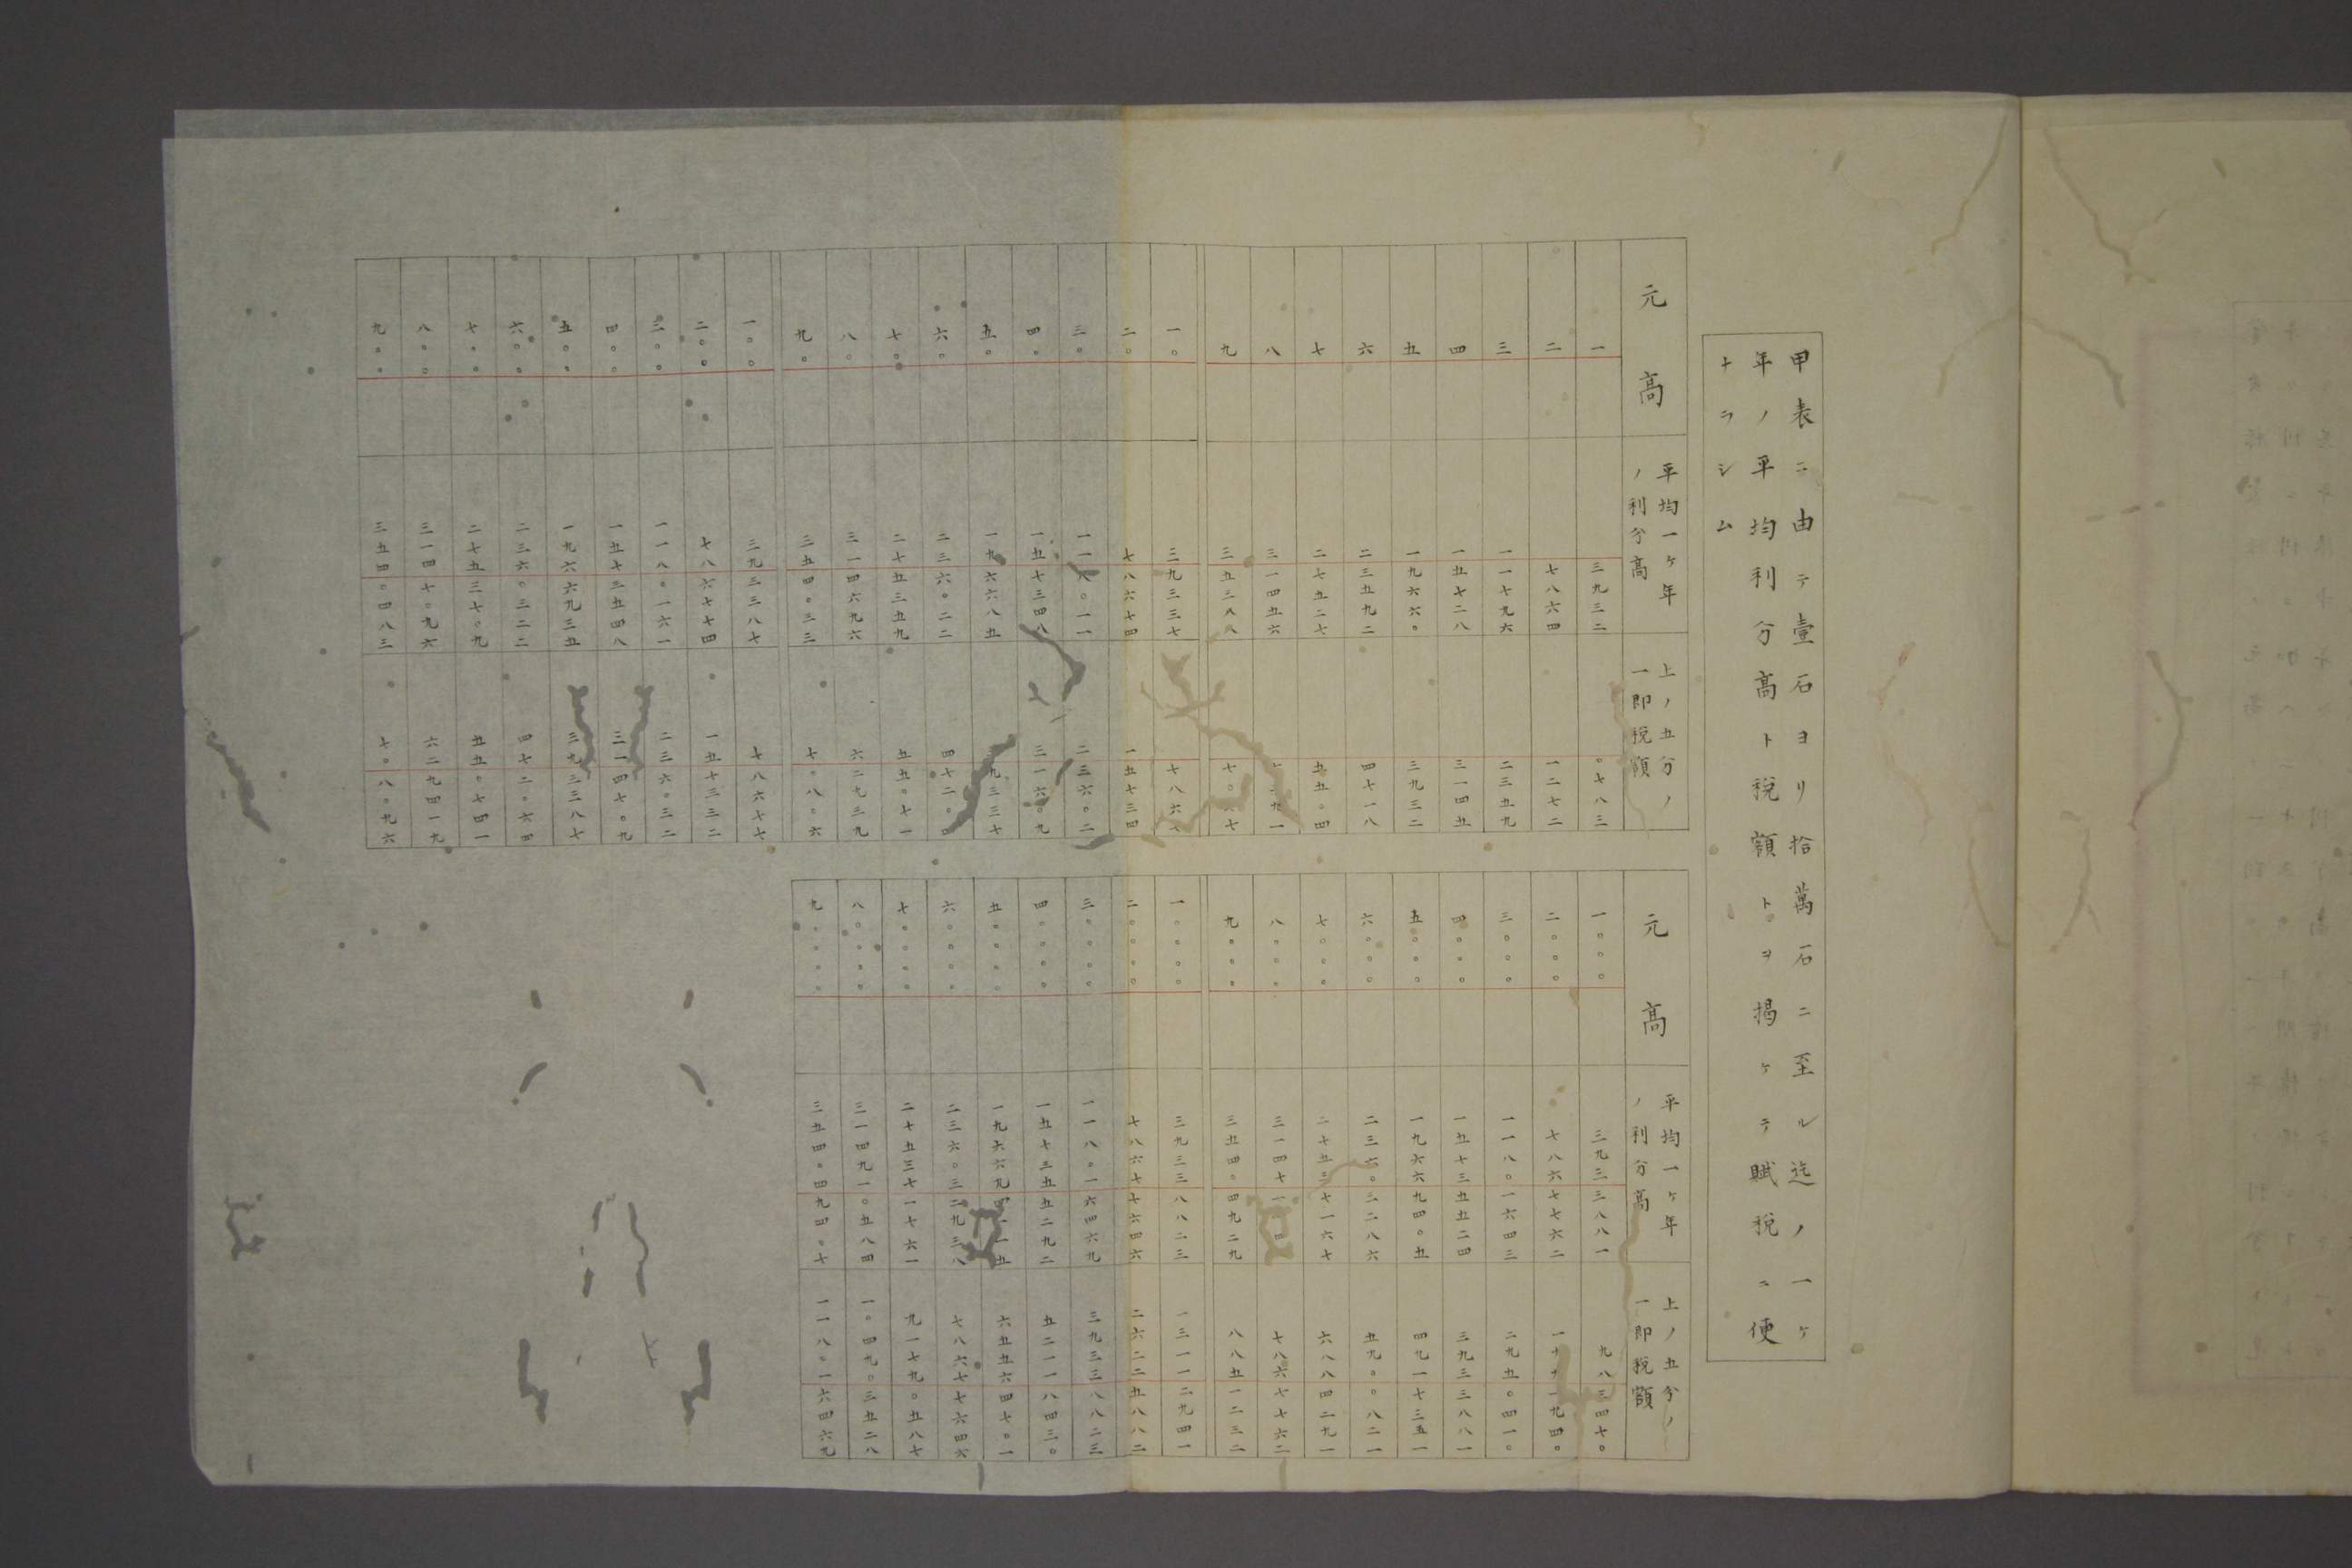 甲表ニ由テ壹石ヨリ拾萬石ニ至ル迄ノ一ヶ
年ノ平均利分高ト税額トヲ掲ケテ賦税ニ便
ナラシム
元高 平均一ヶ年ノ利分高 上ノ五分ノ一即税額
一 三九三二 〇七八三
二 七八六四 一二七二
三 一一七九六 二三五九
四 一五七二八 三一四五
五 一九六六〇 三九三二
六 二三五九二 四七一八
七 二七五二七 五五〇四
八 三一四五六
九 三五三八八
一〇 三九三三七 七八六七
二〇 七八六七四 一五七三四
三〇 一一八〇一一 二三六〇二
四〇 一五七三四八 三一六〇九
五〇 一九六六八五
六〇 二三六〇二二 四七二〇四
七〇 二七五三五九 五五〇七一
八〇 三一四六九六 六二九三九
九〇 三五四〇三三 七〇八〇六
一〇〇 三九三三八七 七八六七七
二〇〇 七八六七七四 一五七三三二
三〇〇 一一八〇一六一 二三六〇三二
四〇〇 一五七三五四八 三一四七〇九
五〇〇 一九六六九三五 三九三三八七
六〇〇 二三六〇三二二 四七二〇六四
七〇〇 二七五三七〇九 五五〇七四一
八〇〇 三一四七〇九六 六二九四一九
九〇〇 三五四〇四八三 七〇八〇九六
元高 平均一ヶ年ノ利分高 上ノ五分ノ一即税額
一〇〇〇 三九三三八八一 九八三四七〇
二〇〇〇 七八六七七六二
三〇〇〇 一一八〇一六四三 二九五〇四一〇
四〇〇〇 一五七三五五二四 三九三三八八一
五〇〇〇 一九六六九四〇五 四九一七三五一
六〇〇〇 二三六〇三二八六 五九〇〇八二一
七〇〇〇 二七五三七一六七 六八八四二九一
八〇〇〇 七八六七七六二
九〇〇〇 三五四〇四九二九 八八五一二三二
一〇〇〇〇 三九三三八八二三 一三一一二九四一
二〇〇〇〇 七八六七七六四六 二六二二五八八二
三〇〇〇〇 一一八〇一六四六九 三九三三八八二三
四〇〇〇〇 一五七三五五二九二 五二一一八四三〇
五〇〇〇〇 六五五六四七〇一
六〇〇〇〇 二三六〇三二九三八 七八六七七六四六
七〇〇〇〇 二七五三七一七六一 九一七九〇五八七
八〇〇〇〇 三一四九一〇五八四 一〇四九〇三五二八
九〇〇〇〇 三五四〇四九四〇七 一一八〇一六四六九